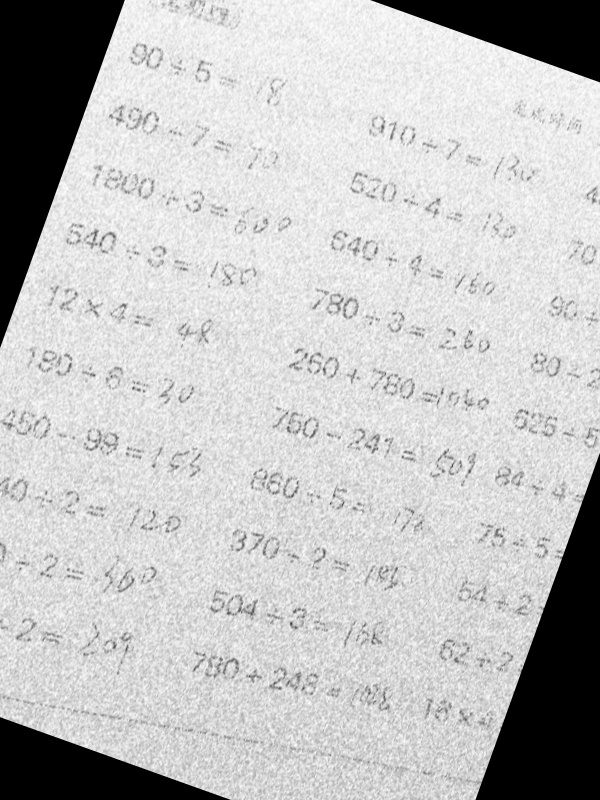 90÷5= 18
490÷7= 70
1800÷3= 600
540÷3= 180
12×4= 48
180÷6= 30
40÷2= 120
÷2=
÷2= 209
完成时间
910÷7= 130
520÷4= 130
640÷4= 160
780÷3= 260
260+780=1040
750-241= 509
860÷5= 172
370÷2= 185
504÷3= 168
780+248= 1028
70
90÷
80÷2
625÷5
84÷4=
75÷5=
54÷2=
62÷2
18×